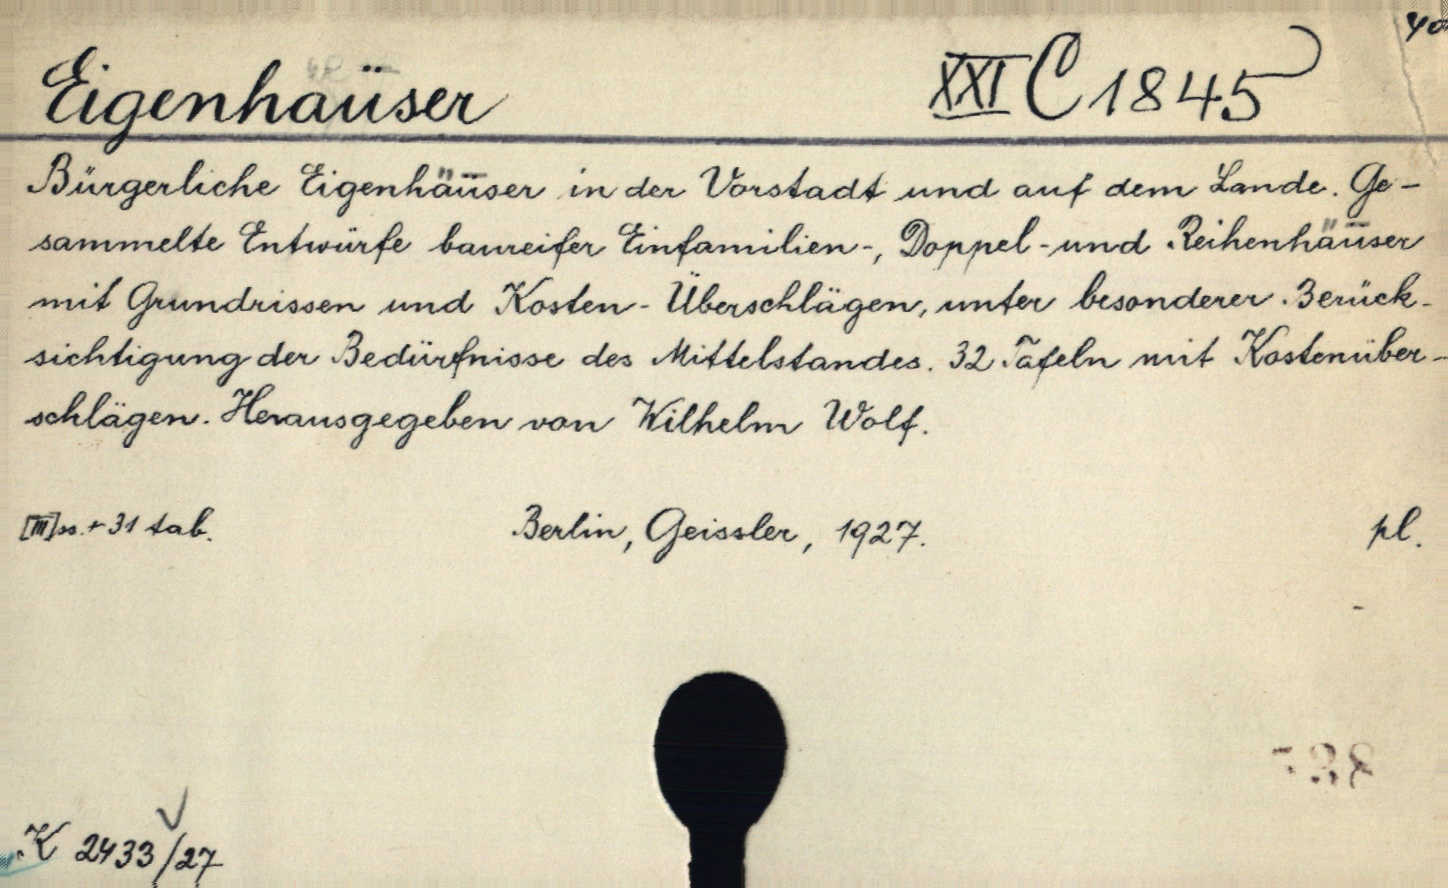 40
Eigenhäuser XXI C 1845
Bürgerliche Eigenhäuser in der Vorstadt und auf dem Lande. Ge-
sammelte Entwürfe baureifer Einfamilien-, Doppel- und Reihenhäuser
mit Grundrissen und Kosten-Überschlägen, unter besonderer Berück-
sichtigung der Bedürfnisse des Mittelstandes. 32 Tafeln mit Kostenüber-
schlägen. Herausgegeben von Wilhelm Wolf.
[III] ss. + 31 tab. Berlin, Geissler, 1927. pl.
K 2433/27